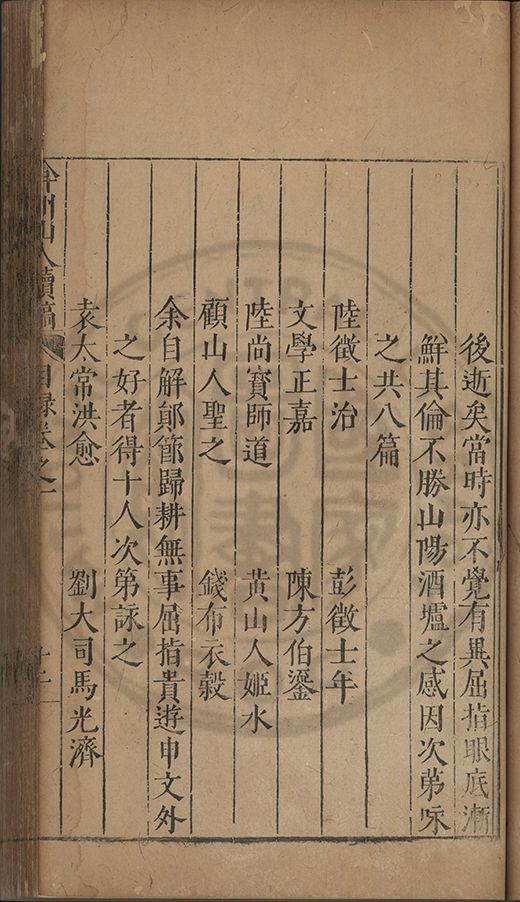 後逝矣當時亦不覺有異屈指眼底漸
鮮其倫不勝山陽酒壚之感因次弟咏
之共八篇
陸徵士治 彭徵士年
文學正嘉 陳方伯鎏
陸尚寶師道 黃山人姬水
顧山人聖之 錢布衣穀
余自解鄖節歸耕無事屈指貴遊申文外
之好者得十人次第詠之
袁太常洪愈 劉大司馬光濟
弇州山人續稿 目錄卷之一